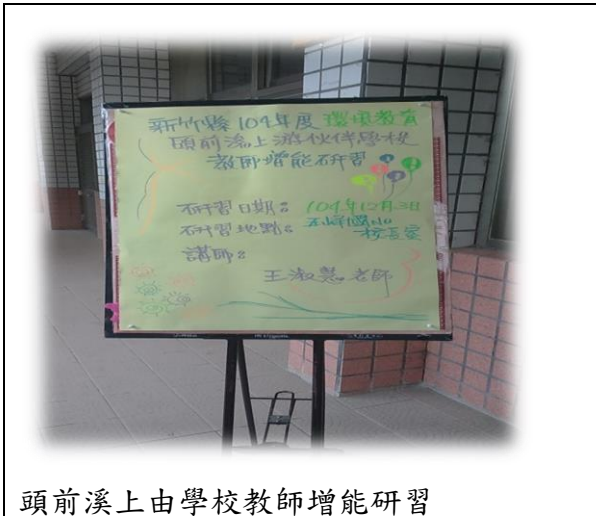 新竹縣104年度環境教育
頭前溪上游伙伴學校
教師增能研習
研習日期：104年12月3日
研習地點：五峰國小
校長室
講師：
王淑慧老師
頭前溪上由學校教師增能研習